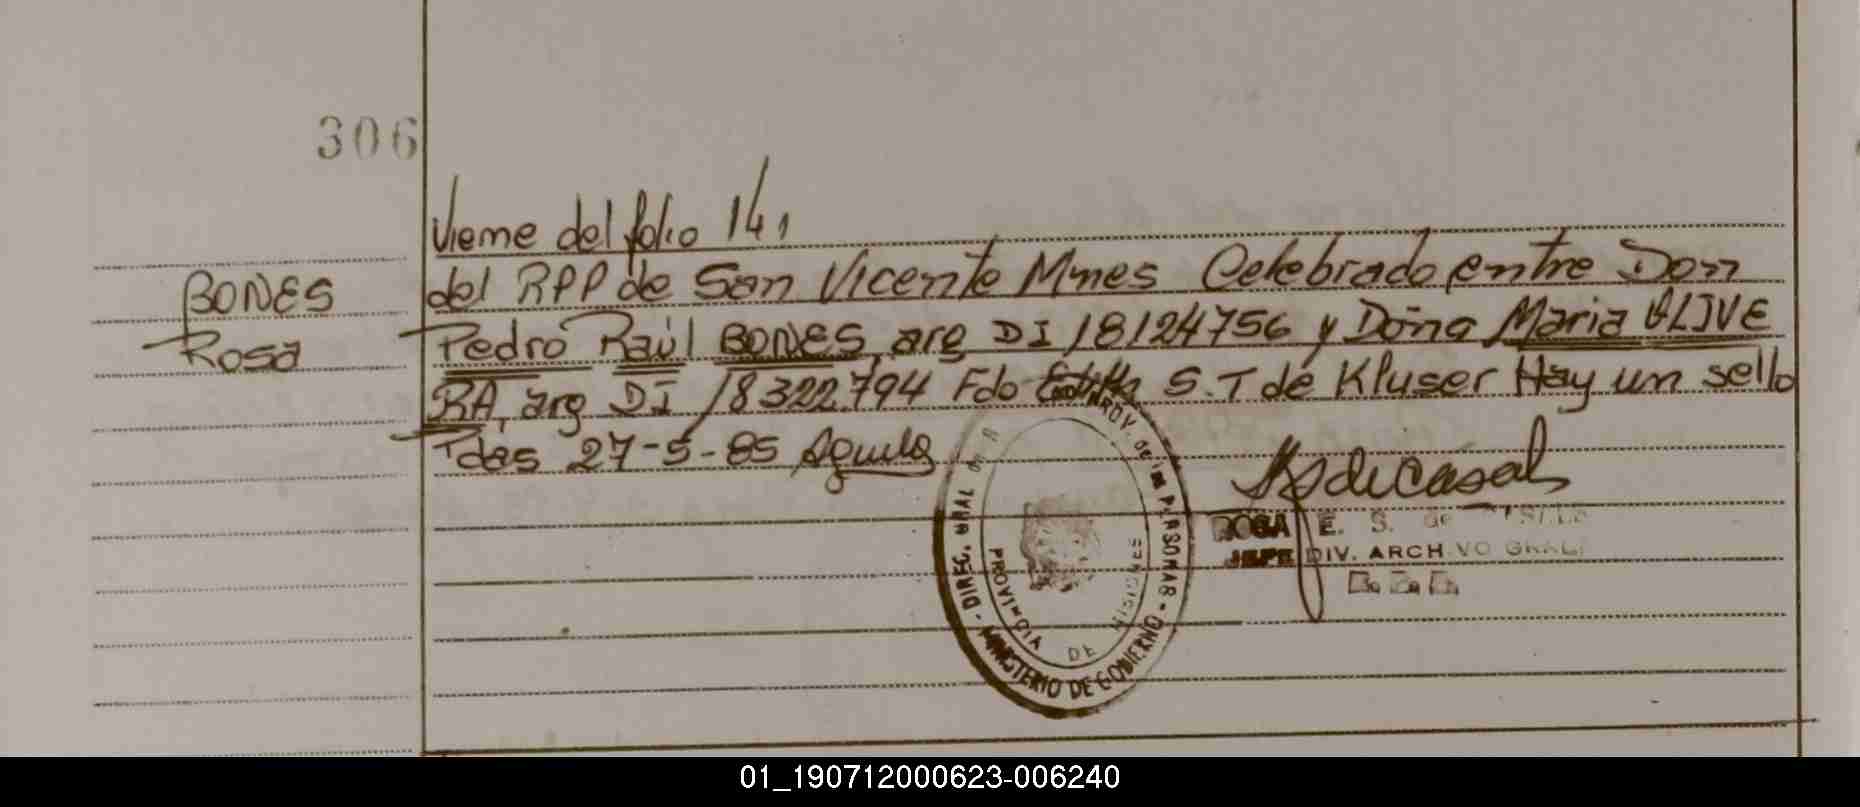 306
Vieme del folio 141
BONES
Rosa
del RPP de San Vicente Mnes Celebrado entre Don
Pedro Raúl BONES, arg DI 18124756 y Doña Maria OLIVE
RA, arg DI 18322.794 Fdo Edith S. T de Kluser Hay un sello
Pdas 27-5-85 Aguila
DIREC. GRAL de PROV. de las PERSONAS - MINISTERIO DE GOBIERNO -
PROVINCIA DE MISIONES
ROSA E. S. de
JEFE DIV. ARCHIVO GRAL.
01_190712000623-006240